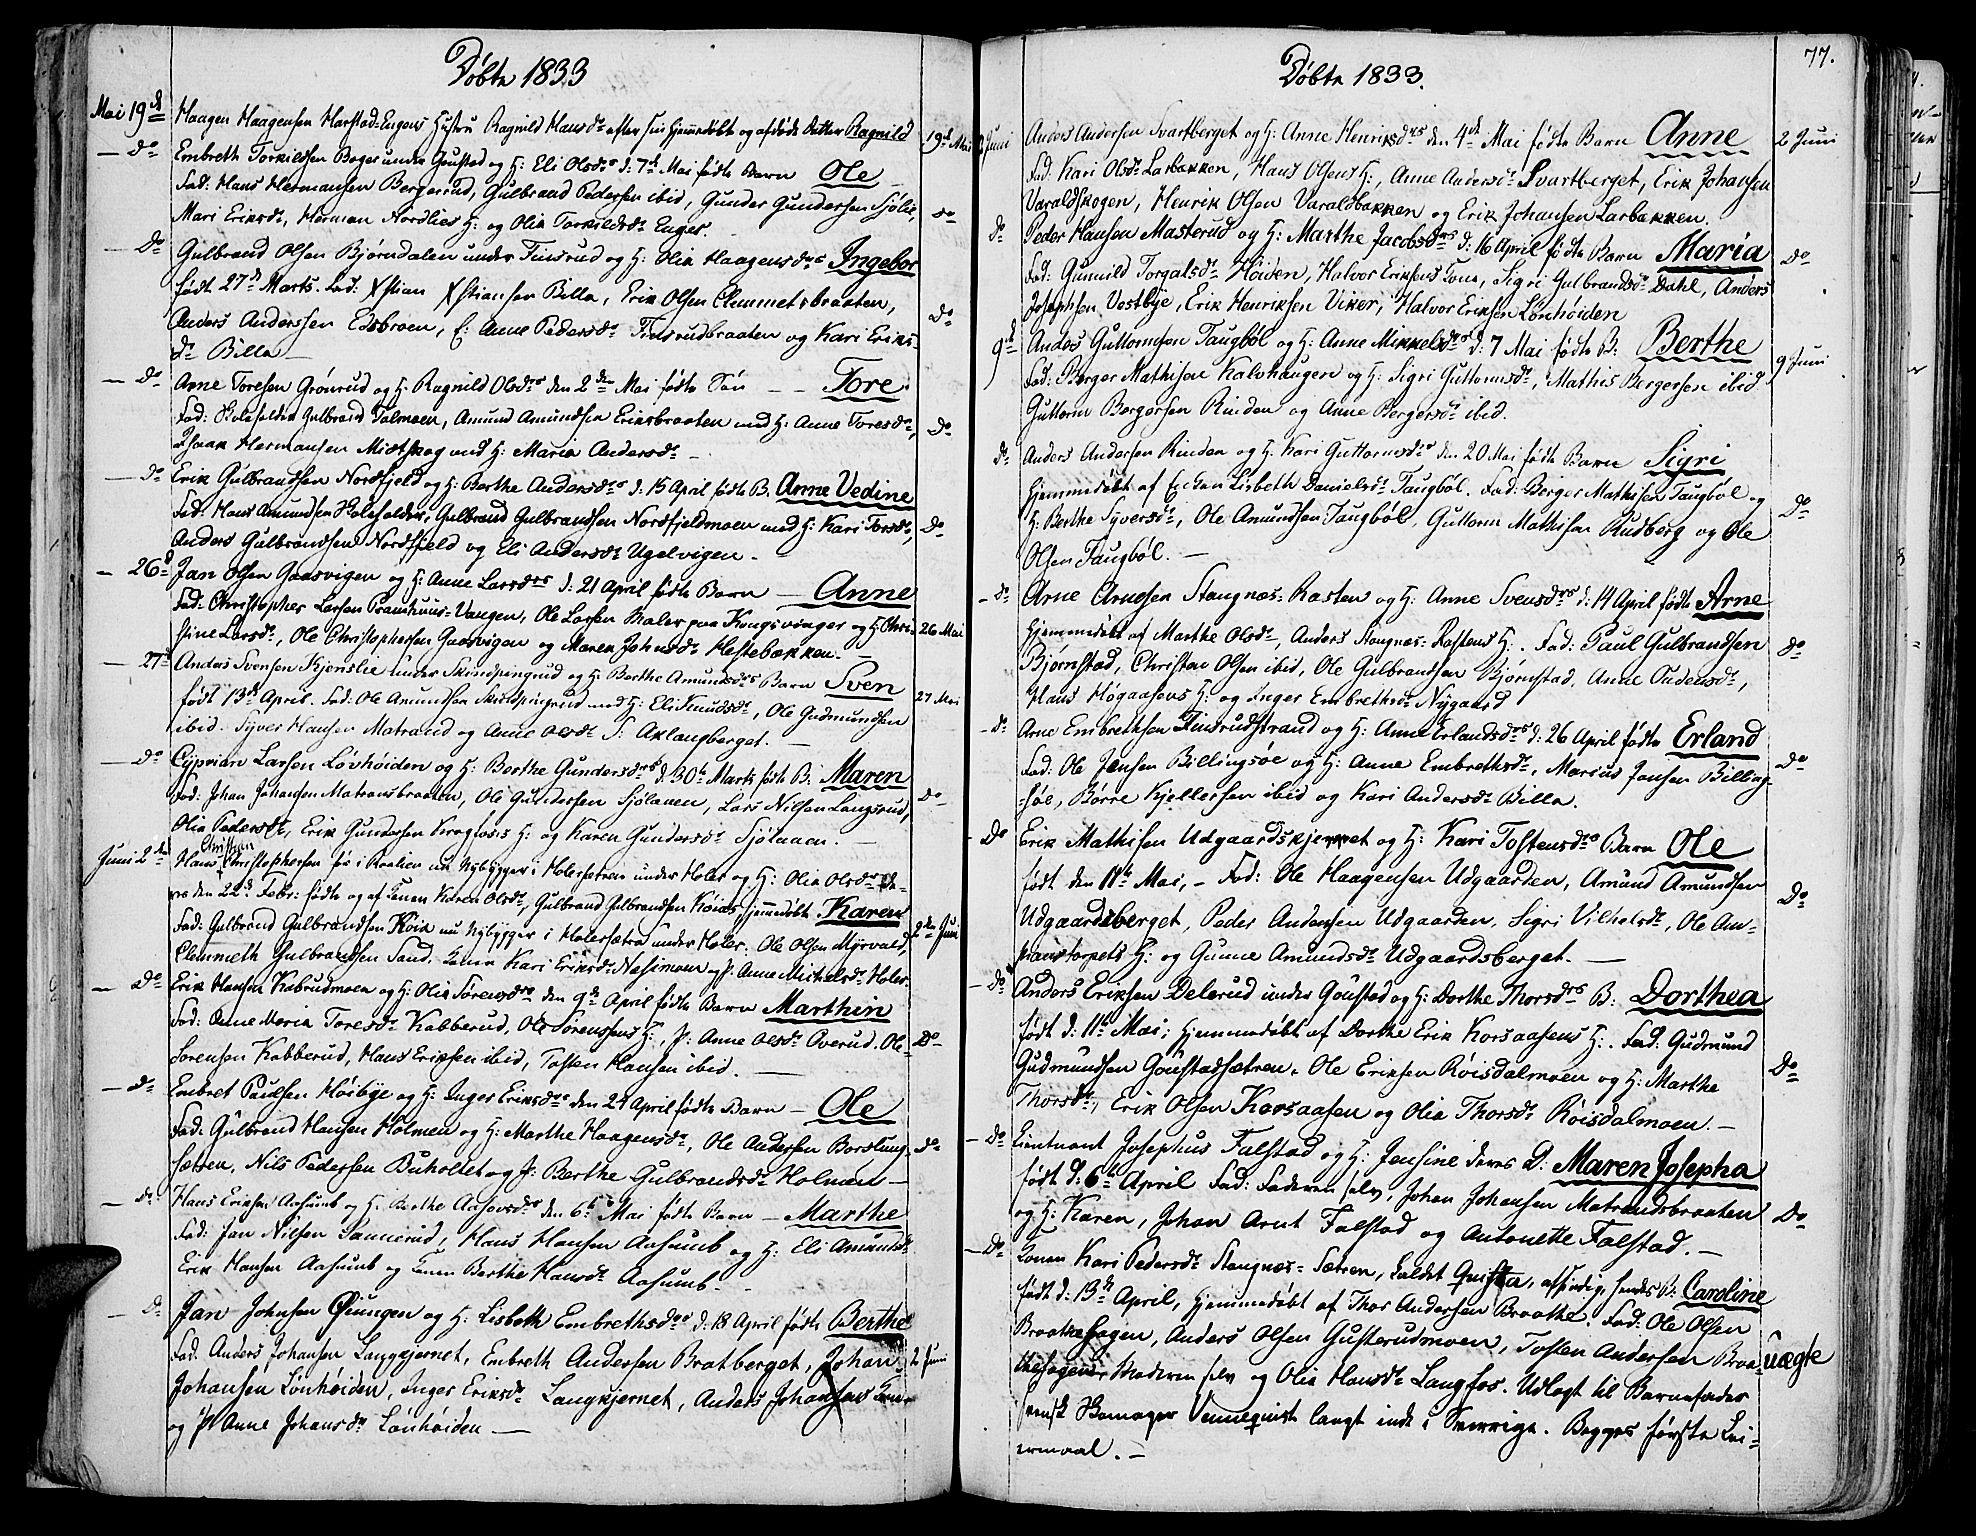 Döbte 1833
Mai 19de Haagen Haagensen Harstad-Engens Hustru Ragnild Hansdr efter sin hjemmedøbt og afdøde Datter Ragnild 19d Mai
— Do Embreth Torkildsen Boger under Goustad og H: Eli Olsdr d: 7de Mai fødte Barn Ole
Fad: Hans Hermansen Bergerud, Gulbrand Pedersen ibid, Gunder Gundersen Sjölie,
Mari Eriksdr, Herman Nordlies H: og Olia Torkildsdr Enger. do
— Do Gulbrand Olsen Bjørndalen under Finsrud og H: Olia Haagensdrs Ingebor
født 27d Marts. Fad: Xstian Xstiansen Billa, Erik Olsen Clemmetsbraaten,
Anders Anderssen Edsbroen, E: Anne Pedersdr Finsrudbraaten og Kari Eriks- Do
dr Billa —
— Do Arne Toresen Grönrud og H: Ragnild Olsdrs den 2den Mai fødte Sön — Tore
Fad: Skoleholder Gulbrand Talmoen, Amund Amundsen Eriksbraaten med H: Anne Toresdr, Do
Isaak Hermansen Mietskog med H: Maria Andersdr —
— Do Erik Gulbrandsen Nordfjeld og H: Berthe Andersdrs d: 15 April fødte B. Anne Vedine
Fad: Hans Amundsen Skoleholder, Gulbrand Gulbrandsen Nordfjeldmoen med H: Kari Torsdr, Do
Anders Gulbrandsen Nordfjeld og Eli Andersdr Ugelvigen —
— 26d Jan Olsen Gaasvigen og H: Anne Larsdrs d: 21 April fødte Barn — Anne
Fad: Christopher Larsen Pramhuus-Vangen, Ole Larsen Maler paa Kongsvinger og H: Chri- 26 Mai
stine Larsdr, Ole Christophersen Gaasvigen og Maren Johnsdr Hestebækken. —
— 27d Anders Svensen Kjenslie under Skindpungrud og H: Berthe Amundsdrs Barn Sven
født 13de April. Fad: Ole Amundsen Skindpungrud med H: Eli Knudsdr, Ole Gudmundsen 27 Mai
ibid. Syver Hansen Matrand og Anne Olsdr Axlangberget. —
— Do Cyprian Larsen Lövhöiden og H: Berthe Gundersdrs d. 30te Marts fødte B: Maren
Fad: Johan Johansen Matransbraaten, Ole Gundersen Sjölanen, Lars Nilsen Langsrud, Do
Olia Pedersdr, Erik Gundersen Krogfosis H: og Karen Gundersdr Sjölanen. —
Juni 2den Hans Christian Christophersen fø i Roalien nu Nybygger i Holersætren under Holer og H: Olia Olsdrs De-
res den 22d Febr: fødte og af Konen Karen Olsdr, Gulbrand Gulbrandsen Koias, hjemmedøbt Karen
Fad: Gulbrand Gulbrandsen Koia nu Nybygger i Holersætra under Holer. Ole Olsen Myrvald, 2den Juni
Clemmeth Gulbrandsen Sand, Konen Kari Eriksdr Næsimoen og P. Anne Michelsdr Holer
— Do Erik Hansen Kabrudmoen og H: Olia Sorensdrs den 9de April fødte Barn Marthin
Fad: Anne Maria Toresdr Kabberud, Ole Sorensens H:, P: Anne Olsdr Overud. Ole Do
Sorensen Kabberud, Hans Eriksen ibid, Tosten Hansen ibid. —
— Do Embret Paulsen Höibye og H: Inger Eriksdrs den 21 April fødte Barn — Ole
Fad: Gulbrand Hansen Holmen og H: Marthe Haagensdr, Ole Andersen Borslung- Do
sætren, Nils Pedersen Buholtet og P: Berthe Gulbrandsdr Holmen —
— Do Hans Eriksen Aasumb og H: Berthe Aasovsdrs den 6te Mai fødte Barn — Marthe
Fad: Jan Nilsen Sannerud, Hans Hansen Aasumb og H: Eli Amundsdr
Erik Hansen Aasumb og Konen Berthe Hansdr Aasumb. —
— Do Jan Johnsen Öiungen og H: Lisbeth Embrethsdrs d: 18 April fødte Berthe
Fad: Anders Johansen Langkjernet, Embreth Andersen Bratberget, Johan 2 Juni
Johansen Lönhöiden, Inger Eriksdr Langkjernet, Anders Johansens Kone
og P Anne Johansdr Lönhöiden —
77.
Döbte 1833.
2 Juni Anders Andersen Svartberget og H: Anne Henriksdrs den 4de Mai fødte Barn Anne 2 Juni
Fad: Kari Olsdr Larbakken, Hans Olsens H:, Anne Andersdr Svartberget, Erik Johansen
Varaldskogen, Henrik Olsen Varaldbakken og Erik Johansen Larbakken.
do Peder Hansen Masterud og H: Marthe Jacobsdrs d: 16 April fødte Barn Maria Do
Fad: Gunnild Torgalsdr Höiden, Halvor Eriksens Kone, Sigri Gulbrandsdr Dahl, Anders
Josephsen Vestbye, Erik Henriksen Viker, Halvor Eriksen Lönhöiden
9de Anders Guttormsen Taugböl og H: Anne Mikkelsdrs d: 7 Mai fødte B: Berthe 9 Juni
Fad: Berger Mathisen Kalvhaugen og H: Sigri Guttormsdr, Mathis Bergersen ibid
Guttorm Bergersen Rinden og Anne Bergersdr ibid.
do Anders Andersen Rinden og H: Kari Guttormsdrs den 20 Mai fødte Barn Sigri
hjemmedøbt af Enken Lisbeth Danielsdr Taugböl. Fad: Berger Mathisen Taugböl og
H: Berthe Syversdr, Ole Amundsen Taugböl, Guttorm Mathisen Rudberg og Ole Do
Olsen Taugböl. —
— do Arne Arnesen Stangnæs-Rasten og H: Anne Svensdrs d: 14 April fødte Arne
hjemmedøbt af Marthe Olsdr, Anders Stangnæs-Rastens H:. Fad: Paul Gulbrandsen Do
Bjørnstad, Christen Olsen ibid, Ole Gulbrandsen Bjørnstad, Anne Pudensdr,
Hans Högaasens H: og Inger Embrethsdr Nygaard
— do Arne Embrethsen Finsrudstrand og H: Anne Erlandsdrs d: 26 April fødte Erland
Fad: Ole Jensen Billingsöe og H: Anne Embrethsdr, Marius Jensen Billing- Do
söe, Börre Kjellersen ibid og Kari Andersdr Billa.
— Do Erik Mathisen Udgaardskjernet og H: Kari Tostensdrs Barn Ole
født den 11te Mai, — Fad: Ole Haagensen Udgaarden, Amund Amundsen Do
Udgaardsberget, Peder Andersen Udgaarden, Sigri Vilhelsdr, Ole Am-
panstorpets H: og Gunne Amundsdr Udgaardsberget. —
— Do Anders Eriksen Delerud under Goustad og H: Dorthe Thorsdrs B: Dorthea
født d: 11te Mai; hjemmedøbt af Dorthe Erik Korsaasens H:. Fad: Gudmund
Gudmundsen Goustadsætren, Ole Eriksen Röisdalmoen og H: Marthe Do
Thorsdr, Erik Olsen Korsaasen og Olia Thorsdr Röisdalmoen. —
— Do Lieutnant Josephus Falstad og H: Jensine deres D: Maren Josepha
født d: 6te April Fad: Faderen selv, Johan Johansen Matrandsbraaten
og H: Karen, Johan Arnt Falstad og Antonette Falstad. — Do
— Do Konen Kari Pedersdr Stangnæs-Sætren, kaldet Quista, afsindig, hendes B: Caroline
født d: 13de April, hjemmedøbt af Thor Andersen Braathe. Fad: Ole Olsen
Braathehagen, Anders Olsen Gusterudmoen, Tosten Andersen Braa- Uægte
thehagen, Moderen selv og Olia Hansdr Langfos. Udlagt til Barnefader
svensk Vennequist langt inde i Sverrige. Begges første Lei-
ermaal. —